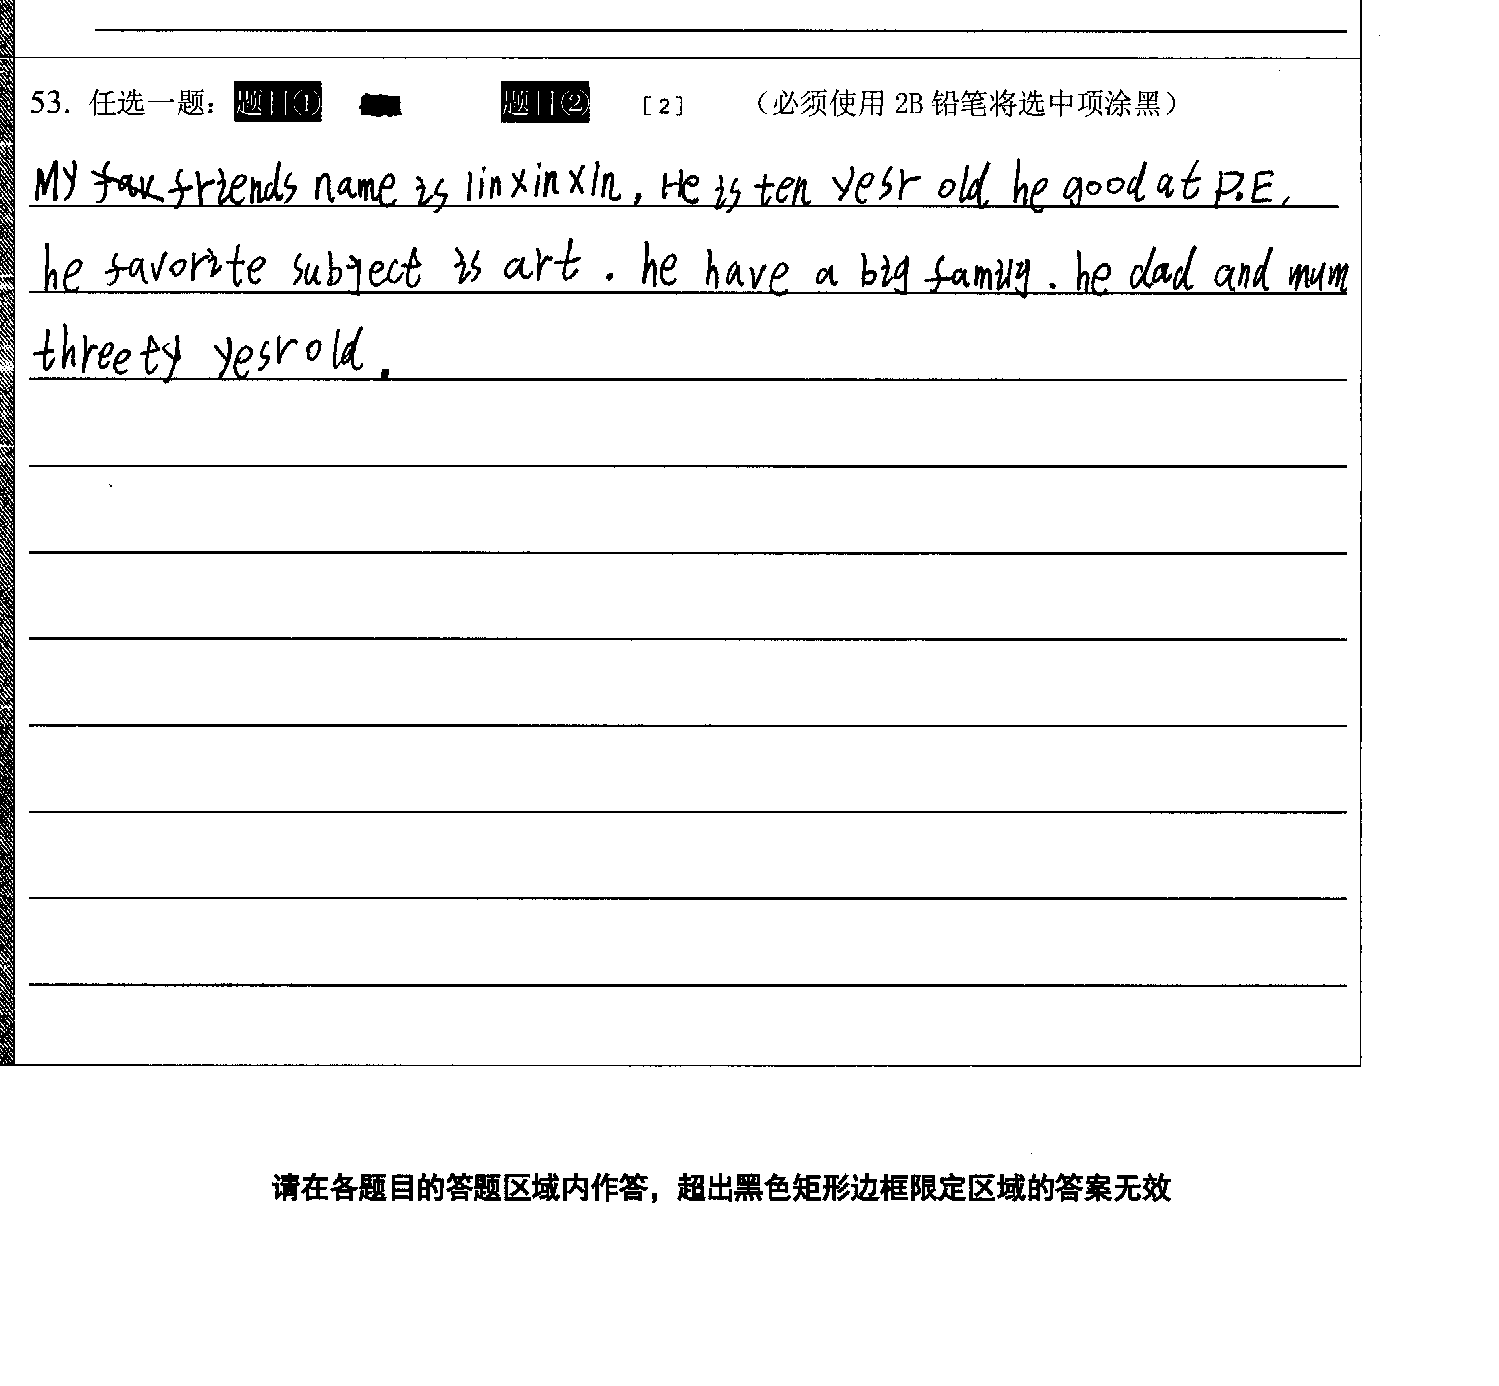 53. 任选一题: 题目① 题目② [2] (必须使用 2B 铅笔将选中项涂黑)
My friends name is linxinxin, He is ten yesr old he good at P.E.
he favorite subject is art. he have a big family. he dad and mum
threety yesr old.
请在各题目的答题区域内作答，超出黑色矩形边框限定区域的答案无效